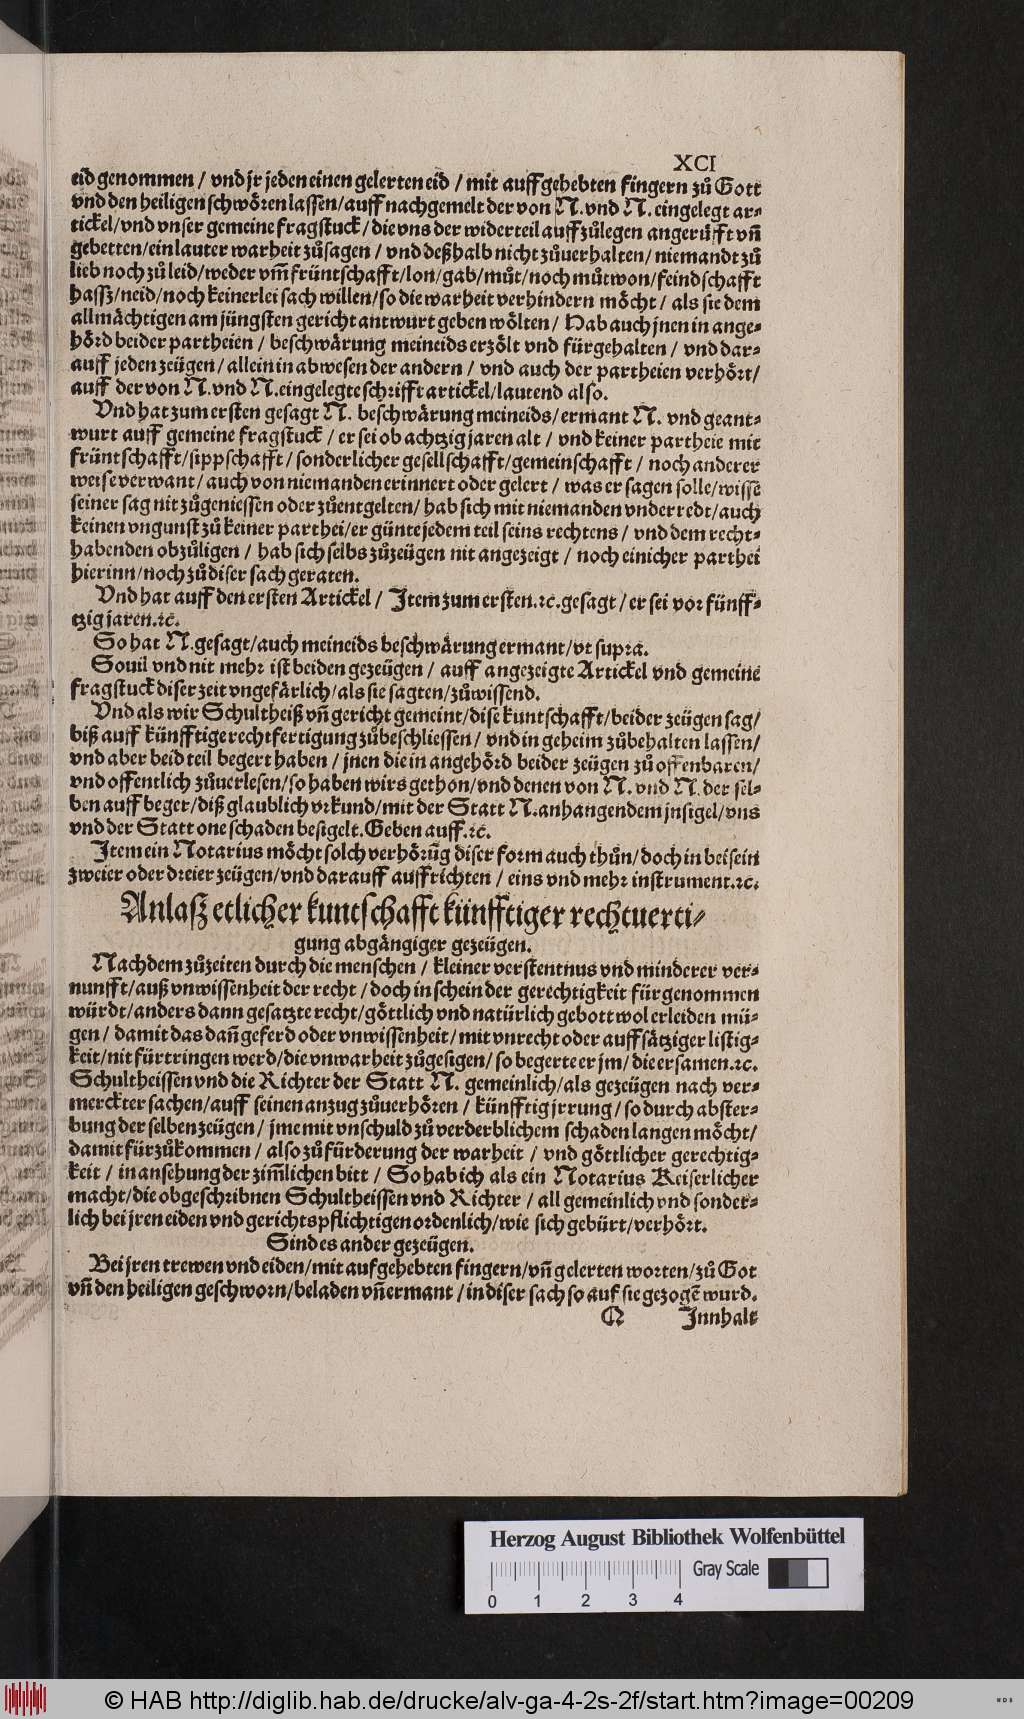 XCI
eid genommen / vnd jr jeden einen gelerten eid / mit auffgehebten fingern zů Gott
vnd den heiligen schwören lassen / auff nachgemelt der von N. vnd N. eingelegt ar-
tickel / vnd vnser gemeine fragstuck / die vns der widerteil auffzůlegen angerüfft vñ
gebetten / ein lauter warheit zůsagen / vnd deßhalb nicht zůuerhalten / niemandt zů
lieb noch zů leid / weder vm̃ früntschafft / lon / gab / můt / noch můtwon / feindschafft
hassz / neid / noch keinerlei sach willen / so die warheit verhindern möcht / als sie dem
allmächtigen am jüngsten gericht antwurt geben wölten / Hab auch jnen in ange-
hörd beider partheien / beschwärung meineids erzölt vnd fürgehalten / vnd dar-
auff jeden zeügen / allein in abwesen der andern / vnd auch der partheien verhört /
auff der von N. vnd N. eingelegte schrifft artickel / lautend also.
Vnd hat zum ersten gesagt N. beschwärung meineids / ermant N. vnd geant-
wurt auff gemeine fragstuck / er sei ob achtzig jaren alt / vnd keiner partheie mit
früntschafft / sippschafft / sonderlicher gesellschafft / gemeinschafft / noch anderer
weise verwant / auch von niemanden erinnert oder gelert / was er sagen solle / wisse
seiner sag nit zůgeniessen oder zůentgelten / hab sich mit niemanden vnderredt / auch
keinen vngunst zů keiner parthei / er günte jedem teil seins rechtens / vnd dem recht-
habenden obzůligen / hab sich selbs zůzeügen nit angezeigt / noch einicher parthei
hierinn / noch zů diser sach geraten.
Vnd hat auff den ersten Artickel / Item zum ersten. ꝛc. gesagt / er sei vor fünff-
tzig jaren. ꝛc.
So hat N. gesagt / auch meineids beschwärung ermant / vt supra.
Souil vnd nit mehr ist beiden gezeügen / auff angezeigte Artickel vnd gemeine
fragstuck diser zeit vngefärlich / als sie sagten / zůwissend.
Vnd als wir Schultheiß vñ gericht gemeint / dise kuntschafft / beider zeügen sag /
biß auff künfftige rechtfertigung zůbeschliessen / vnd in geheim zůbehalten lassen /
vnd aber beid teil begert haben / jnen die in angehörd beider zeügen zů offenbaren /
vnd offentlich zůuerlesen / so haben wirs gethon / vnd denen von N. vnd N. der sel-
ben auff beger / diß glaublich vrkund / mit der Statt N. anhangendem jnsigel / vns
vnd der Statt one schaden besigelt. Geben auff. ꝛc.
Item ein Notarius möcht solch verhörũg diser form auch thůn / doch in beisein
zweier oder dreier zeügen / vnd darauff auffrichten / eins vnd mehr instrument. ꝛc.
Anlasz etlicher kuntschafft künfftiger rechtuerti-
gung abgängiger gezeügen.
Nachdem zůzeiten durch die menschen / kleiner verstentnus vnd minderer ver-
nunfft / auß vnwissenheit der recht / doch in schein der gerechtigkeit fürgenommen
würdt / anders dann gesatzte recht / göttlich vnd natürlich gebott wol erleiden mü-
gen / damit das dañ geferd oder vnwissenheit / mit vnrecht oder auffsätziger listig-
keit / nit fürtringen werd / die vnwarheit zůgesigen / so begerte er jm / die ersamen. ꝛc.
Schultheissen vnd die Richter der Statt N. gemeinlich / als gezeügen nach ver-
merckter sachen / auff seinen anzug zůuerhören / künfftig jrrung / so durch abster-
bung der selben zeügen / jme mit vnschuld zů verderblichem schaden langen möcht /
damit fürzůkommen / also zů fürderung der warheit / vnd göttlicher gerechtig-
keit / in ansehung der zim̃lichen bitt / So hab ich als ein Notarius Keiserlicher
macht / die obgeschribnen Schultheissen vnd Richter / all gemeinlich vnd sonder-
lich bei jren eiden vnd gerichtspflichtigen ordenlich / wie sich gebürt / verhört.
Sind es ander gezeügen.
Bei jren trewen vnd eiden / mit aufgehebten fingern / vñ gelerten worten / zů Got
vñ den heiligen geschworn / beladen vñ ermant / in diser sach so auf sie gezogẽ wurd.
Q Innhalt
Herzog August Bibliothek Wolfenbüttel
Gray Scale
0 1 2 3 4
© HAB http://diglib.hab.de/drucke/alv-ga-4-2s-2f/start.htm?image=00209